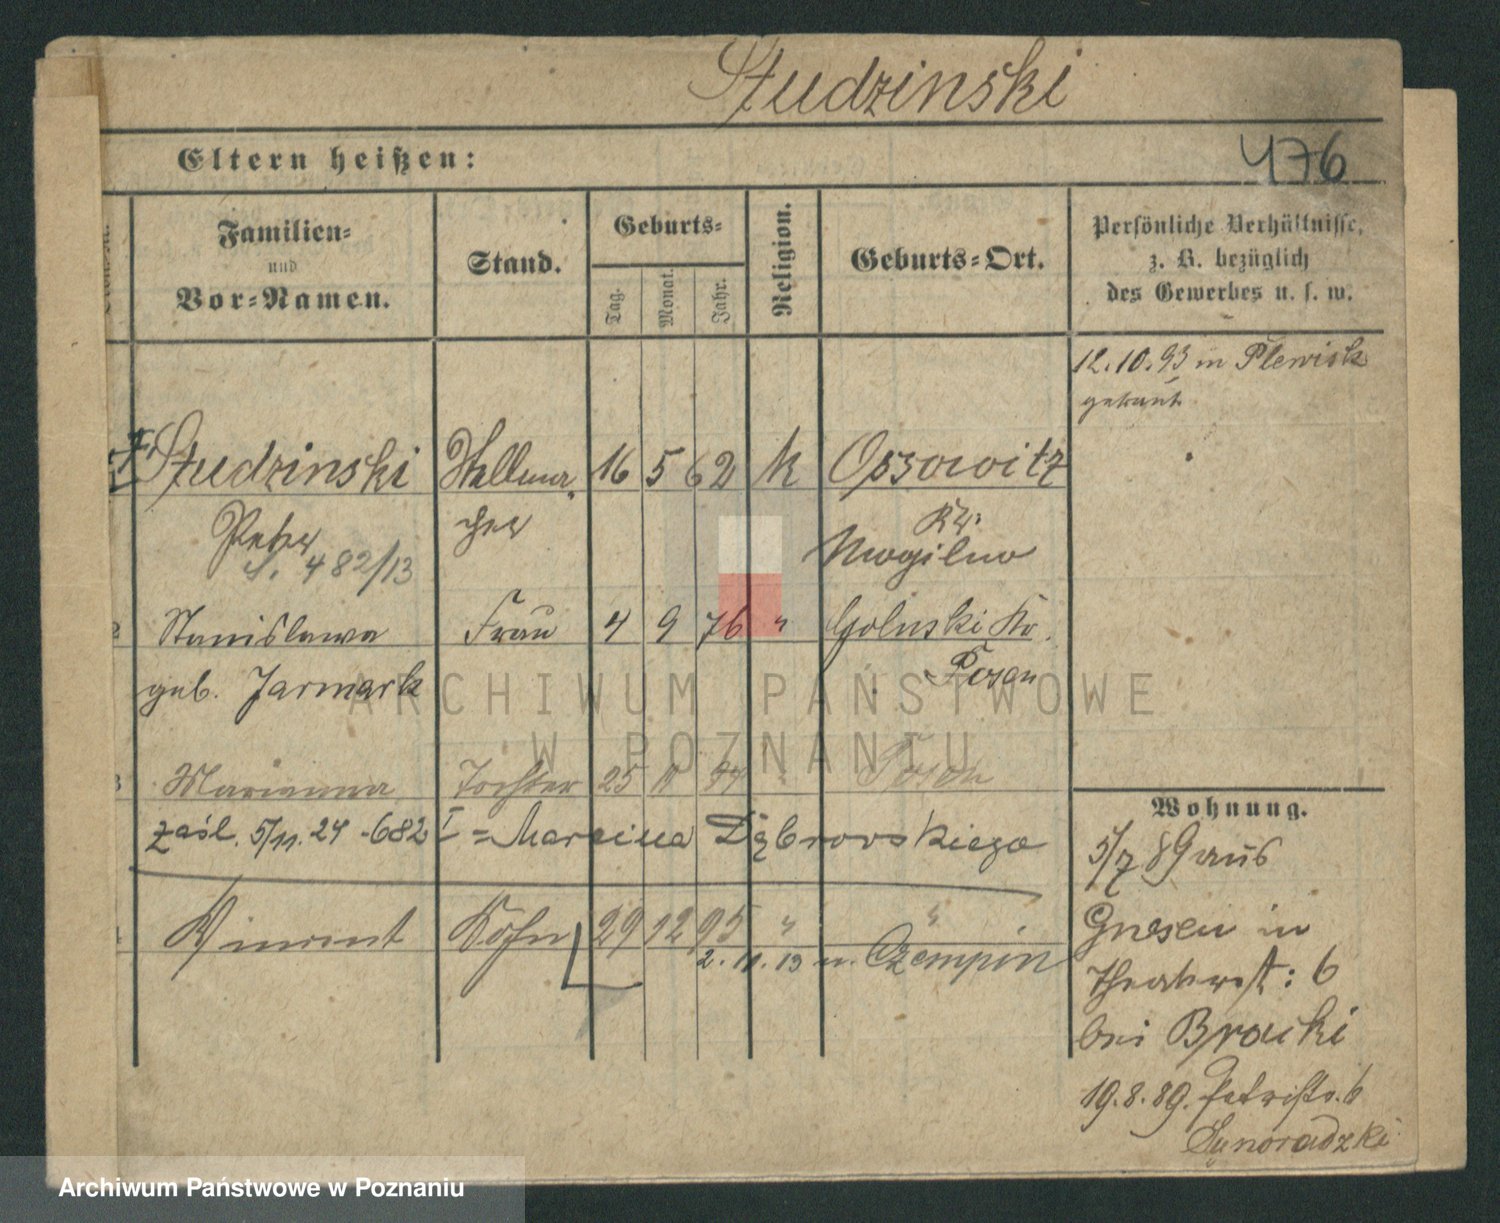 Studzinski
476
Eltern heißen:
Familien-
und
Vor-Namen.
Stand.
Geburts-
Tag.
Monat.
Jahr.
Religion.
Geburts-Ort.
Persönliche Verhältnisse,
z. B. bezüglich
des Gewerbes u. s. w.
12.10.93 in Plewisk
getraut
Studzinski Stellma- 16 5 62 k Ossowitz
Peter cher Kr. Mogilno
482/13
2 Stanislawa Frau 4 9 76 " Golnski Kr.
geb. Jarmark Posen
3 Marianna Tochter 25 11 94 " Posen
zaśl. 5/11.24 -682 I = Marcina Dąbrowskiego
Vincent Sohn 29 12 95 " "
2.11.13 n. Czempin
Wohnung.
5/7 89 aus
Gnesen in
Theaterst: 6
bei Bracki
19.8.89. 6
Synoradzki
ARCHIWUM PAŃSTWOWE
W POZNANIU
Archiwum Państwowe w Poznaniu